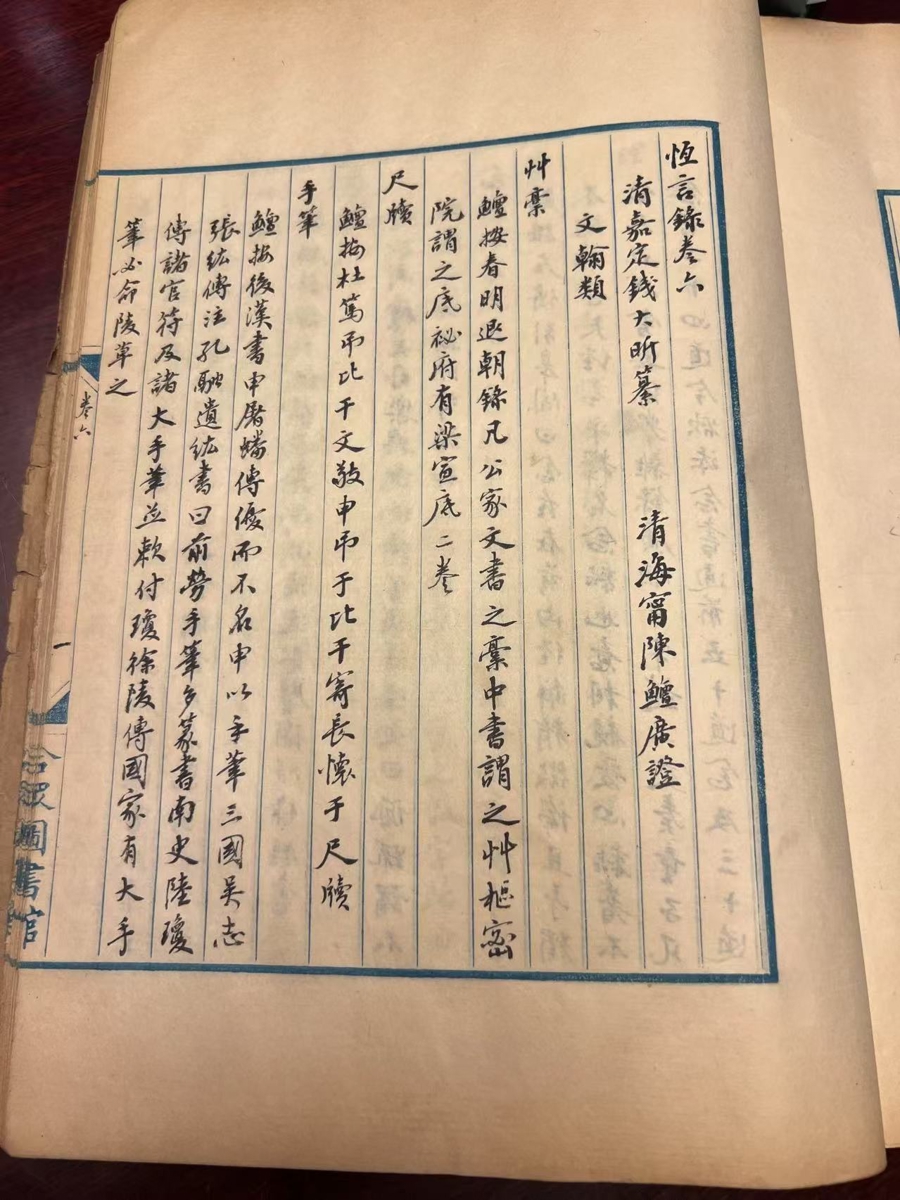 恆言錄卷六
清嘉定錢大昕纂　清海甯陳鱣廣證
文翰類
艸稾
鱣按春明退朝錄凡公家文書之稾中書謂之艸樞密
院謂之底祕府有梁宣底二卷
尺牘
鱣按杜篤弔比干文敬申弔于比干寄長懷于尺牘
手筆
鱣按後漢書申屠蟠傳優而不名申以手筆三國吳志
張紘傳注孔融遺紘書曰前勞手筆多篆書南史陸瓊
傳諸官符及諸大手筆並敕付瓊徐陵傳國家有大手
筆必命陵草之
卷六
一
合眾圖書館